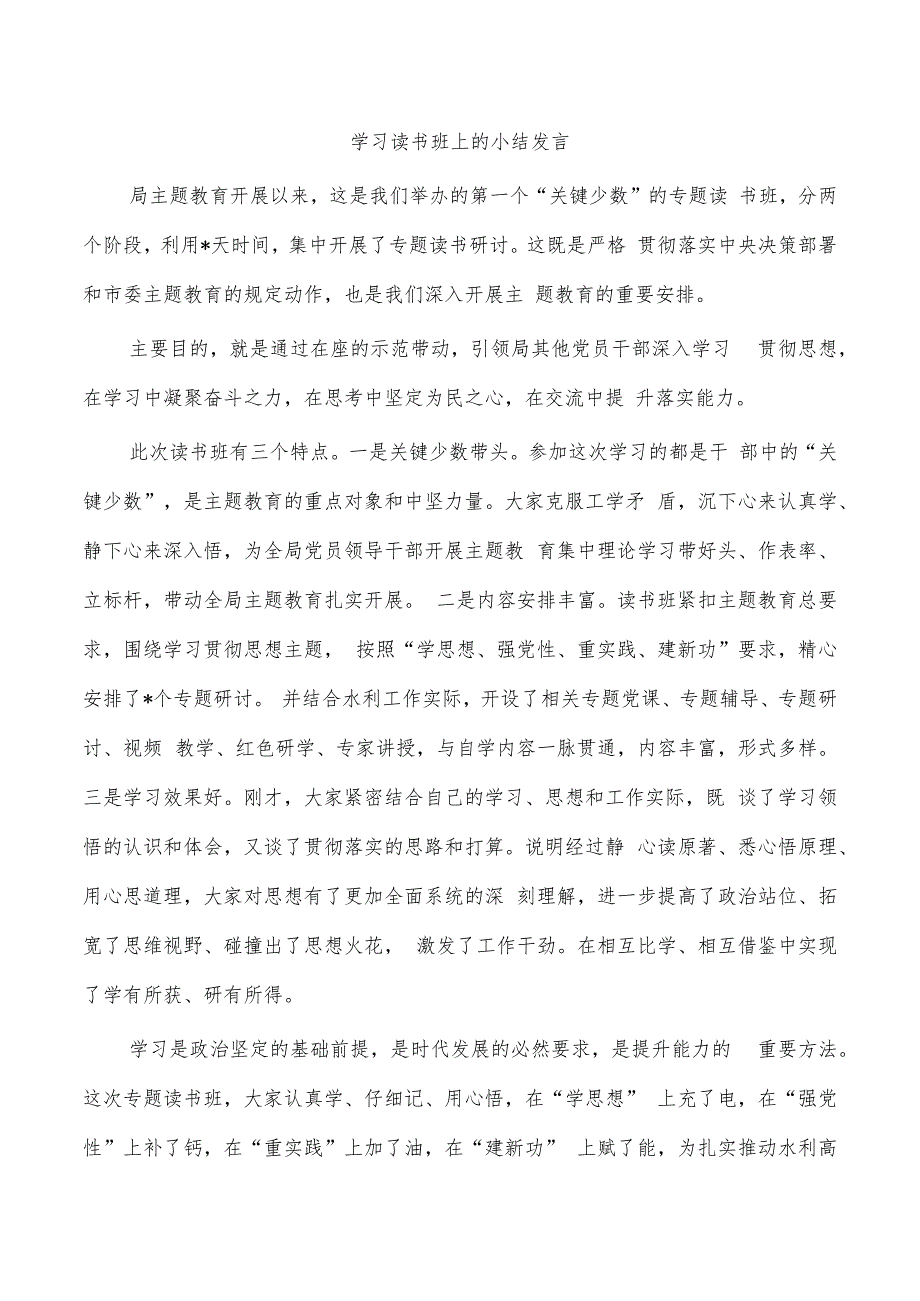 学习读书班上的小结发言
局主题教育开展以来，这是我们举办的第一个“关键少数”的专题读 书班，分两
个阶段，利用*天时间，集中开展了专题读书研讨。这既是严格 贯彻落实中央决策部署
和市委主题教育的规定动作，也是我们深入开展主 题教育的重要安排。
主要目的，就是通过在座的示范带动，引领局其他党员干部深入学习 贯彻思想，
在学习中凝聚奋斗之力，在思考中坚定为民之心，在交流中提 升落实能力。
此次读书班有三个特点。一是关键少数带头。参加这次学习的都是干 部中的“关
键少数”，是主题教育的重点对象和中坚力量。大家克服工学矛 盾，沉下心来认真学、
静下心来深入悟，为全局党员领导干部开展主题教 育集中理论学习带好头、作表率、
立标杆，带动全局主题教育扎实开展。 二是内容安排丰富。读书班紧扣主题教育总要
求，围绕学习贯彻思想主题， 按照“学思想、强党性、重实践、建新功”要求，精心
安排了*个专题研讨。 并结合水利工作实际，开设了相关专题党课、专题辅导、专题研
讨、视频 教学、红色研学、专家讲授，与自学内容一脉贯通，内容丰富，形式多样。
三是学习效果好。刚才，大家紧密结合自己的学习、思想和工作实际，既 谈了学习领
悟的认识和体会，又谈了贯彻落实的思路和打算。说明经过静 心读原著、悉心悟原理、
用心思道理，大家对思想有了更加全面系统的深 刻理解，进一步提高了政治站位、拓
宽了思维视野、碰撞出了思想火花， 激发了工作干劲。在相互比学、相互借鉴中实现
了学有所获、研有所得。
学习是政治坚定的基础前提，是时代发展的必然要求，是提升能力的 重要方法。
这次专题读书班，大家认真学、仔细记、用心悟，在“学思想” 上充了电，在“强党
性”上补了钙，在“重实践”上加了油，在“建新功” 上赋了能，为扎实推动水利高